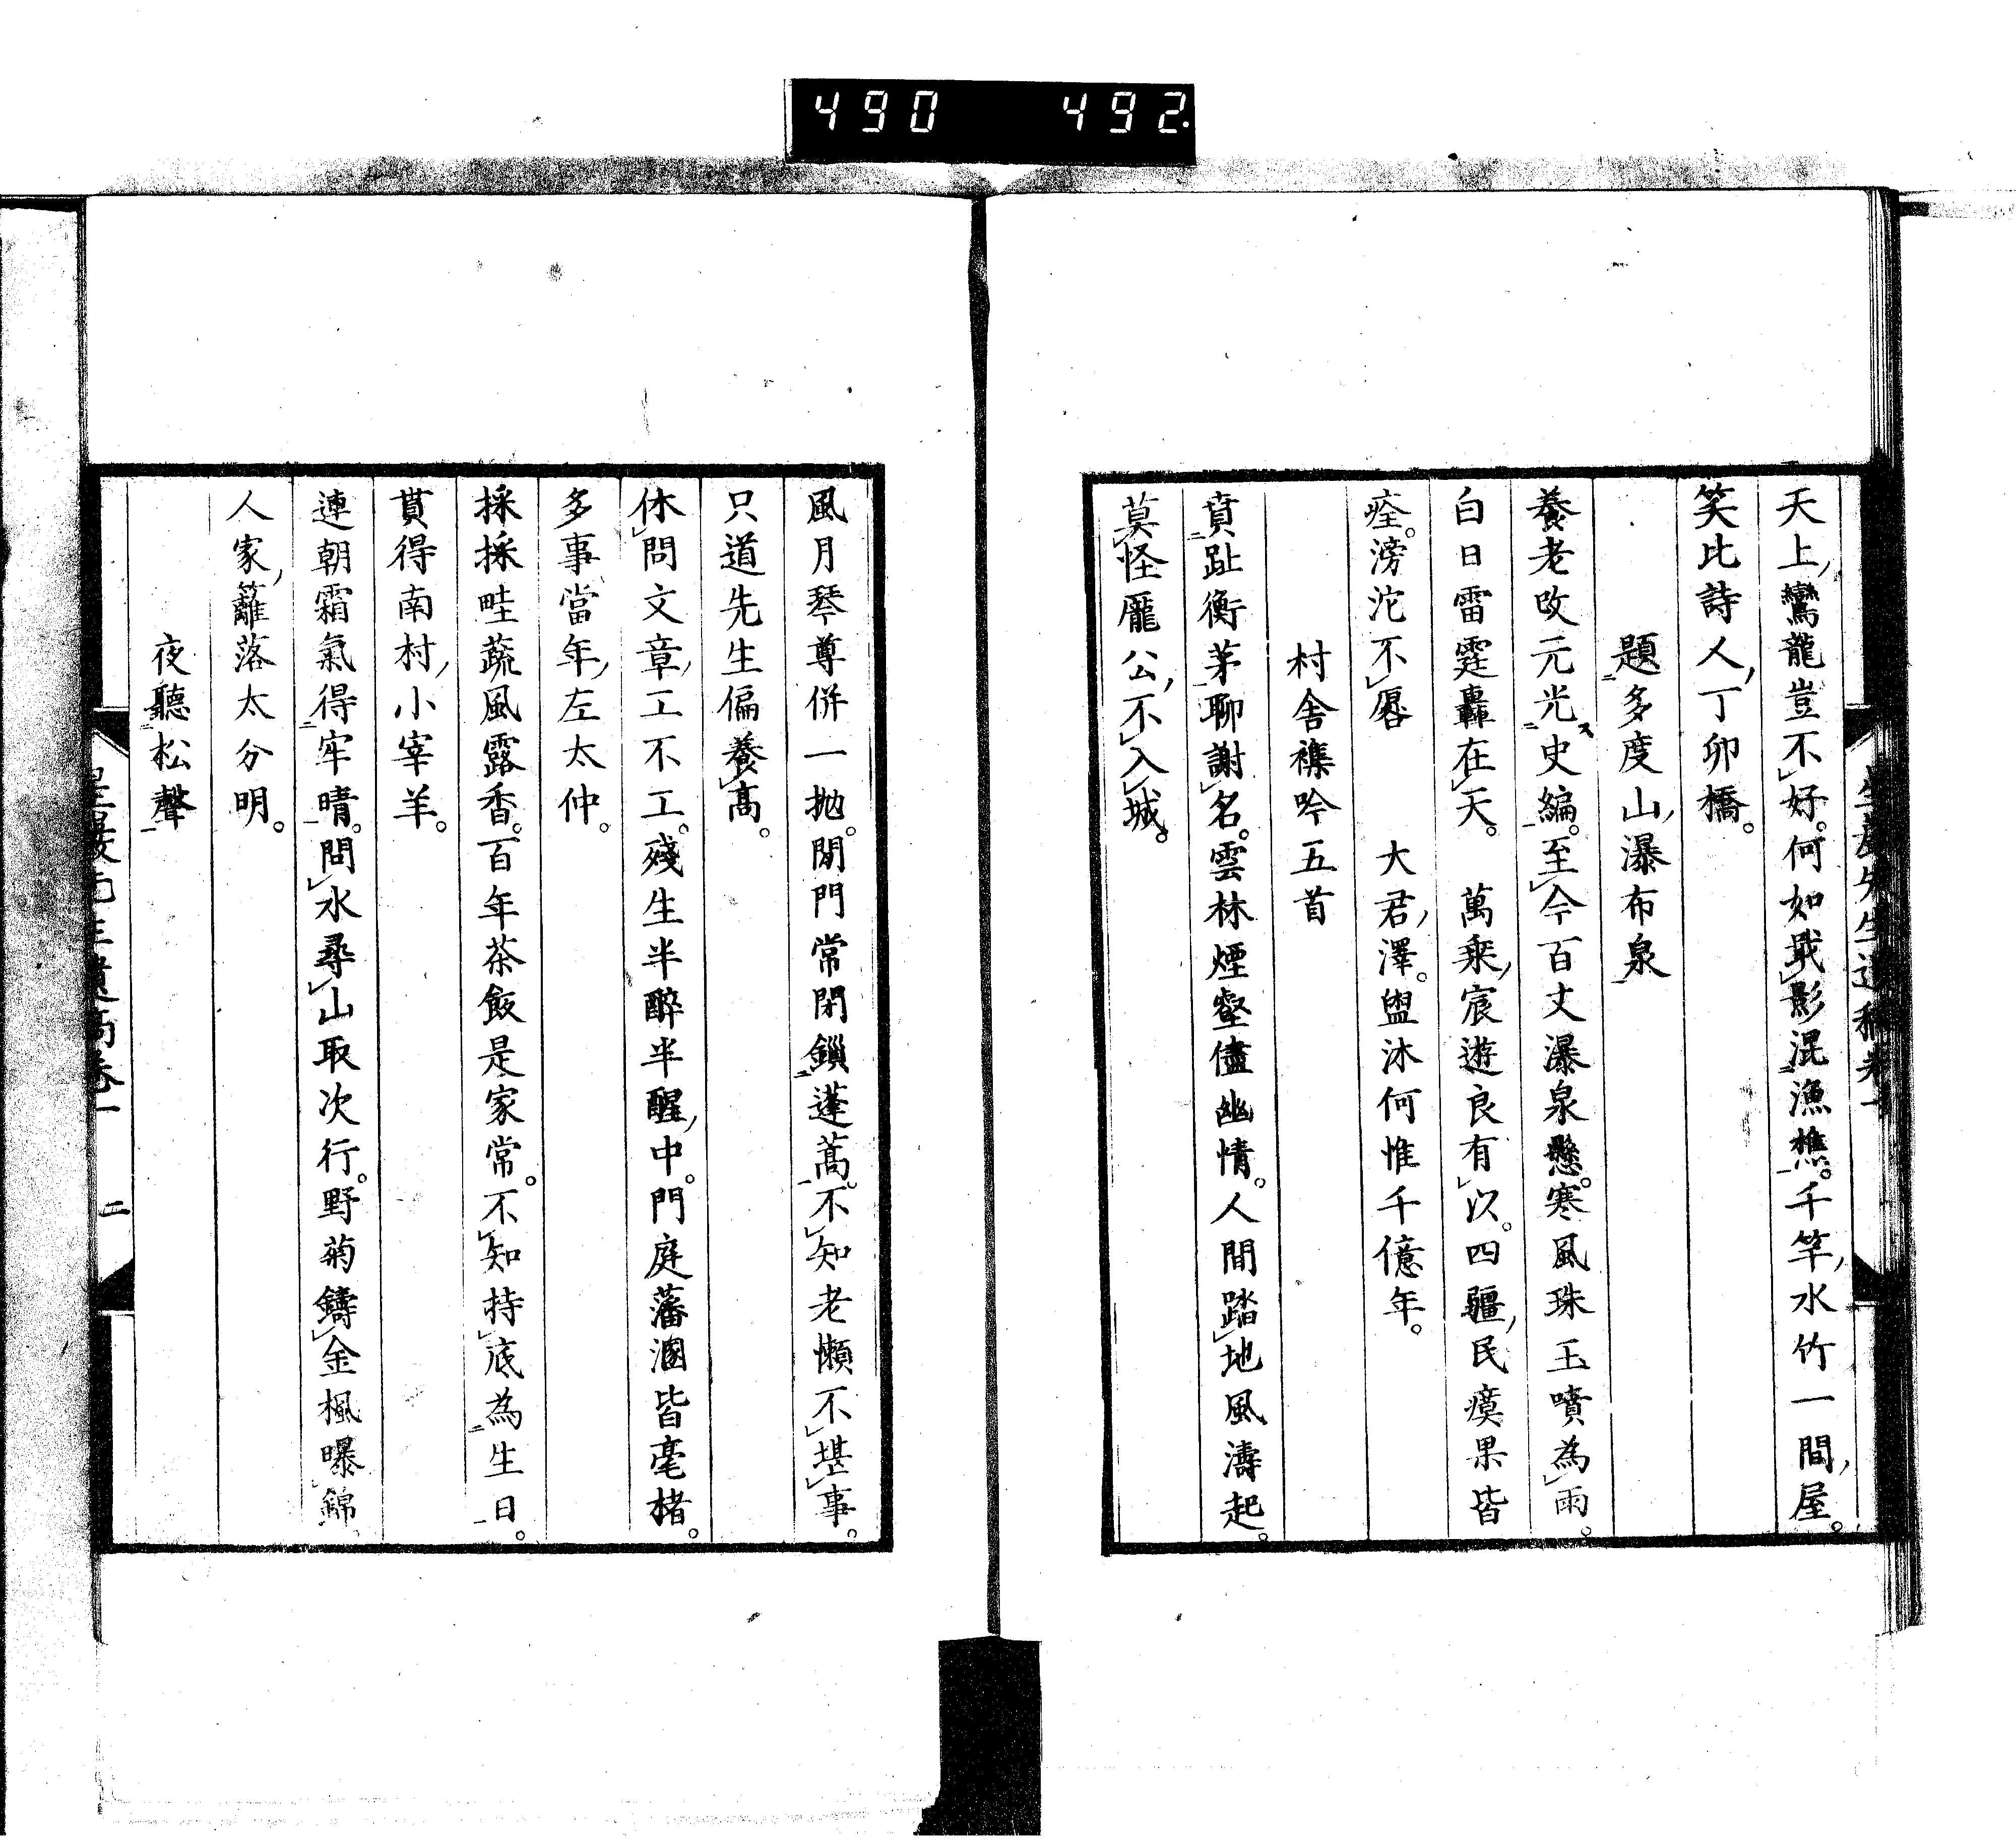 490 492
天上鸞龍豈不好。何如戢影混漁樵。千竿水竹一間屋。
笑比詩人丁卯橋。
題多度山瀑布泉
養老改元光史編。至今百丈瀑泉懸。寒風珠玉噴為雨。
白日雷霆轟在天。 萬乘宸遊良有以。四疆民瘼果皆
痊。滂沱不匱 大君澤。盥沐何惟千億年。
村舍襍吟五首
賁趾衡茅聊謝名。雲林煙壑儘幽情。人間踏地風濤起。
莫怪龐公不入城。
風月琴尊併一拋。閒門常閉鎖蓬蒿。不知老懶不堪事。
只道先生偏養高。
休問文章工不工。殘生半醉半醒中。門庭藩溷皆毫楮。
多事當年左太仲。
採採畦蔬風露香。百年茶飯是家常。不知持底為生日。
貰得南村小宰羊。
連朝霜氣得牢晴。問水尋山取次行。野菊鑄金楓曝錦
人家籬落太分明。
夜聽松聲
二